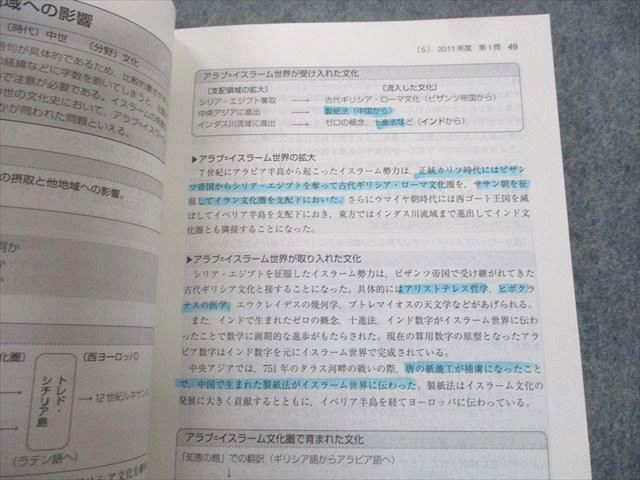 域への影響
〔時代〕中世 〔分野〕文化
の摂取と他地域への影響。
何か
〔西ヨーロッパ〕
トレド・
シチリア島
12世紀ルネサンス
(ラテン語へ)
〔5〕 2011年度 第1問 49
アラブ=イスラーム世界が受け入れた文化
〔支配領域の拡大〕 〔流入した文化〕
シリア・エジプト奪取 → 古代ギリシア・ローマ文化(ビザンツ帝国から)
中央アジアに進出 → 製紙法(中国から)
インダス川流域に進出 → ゼロの概念,十進法など(インドから)
▶アラブ=イスラーム世界の拡大
7世紀にアラビア半島から起こったイスラーム勢力は,正統カリフ時代にはビザン
ツ帝国からシリア・エジプトを奪って古代ギリシア・ローマ文化圏を,ササン朝を征
服してイラン文化圏を支配下においた。さらにウマイヤ朝時代には西ゴート王国を滅
ぼしてイベリア半島を支配下におき,東方ではインダス川流域まで進出してインド文
化圏とも隣接することになった。
▶アラブ=イスラーム世界が取り入れた文化
シリア・エジプトを征服したイスラーム勢力は,ビザンツ帝国で受け継がれてきた
古代ギリシア文化と接することになった。具体的にはアリストテレス哲学,ヒポクラ
テスの医学,エウクレイデスの幾何学,プトレマイオスの天文学などがあげられる。
また,インドで生まれたゼロの概念,十進法,インド数字がイスラーム世界に伝わ
ったことで数学に画期的な進歩がもたらされた。現在の算用数字の原型となったアラ
ビア数字はインド数字を元にイスラーム世界で完成されている。
中央アジアでは,751年のタラス河畔の戦いの際,唐の紙漉工が捕虜になったこと
で,中国で生まれた製紙法がイスラーム世界に伝わった。製紙法はイスラーム文化の
発展に大きく貢献するとともに,イベリア半島を経てヨーロッパに伝わっている。
アラブ=イスラーム文化圏で育まれた文化
「知恵の館」での翻訳(ギリシア語からアラビア語へ)